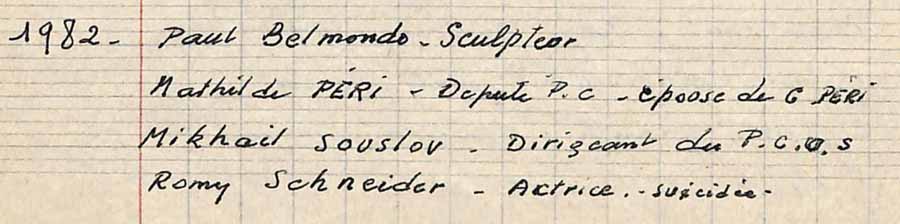 1982 - Paul Belmondo - Sculpteur
Mathilde PÉRI - Députe P.C - épouse de G PÉRI
Mikhail Souslov - Dirigeant du P.C.U.S
Romy Schneider - Actrice. - suicidée -